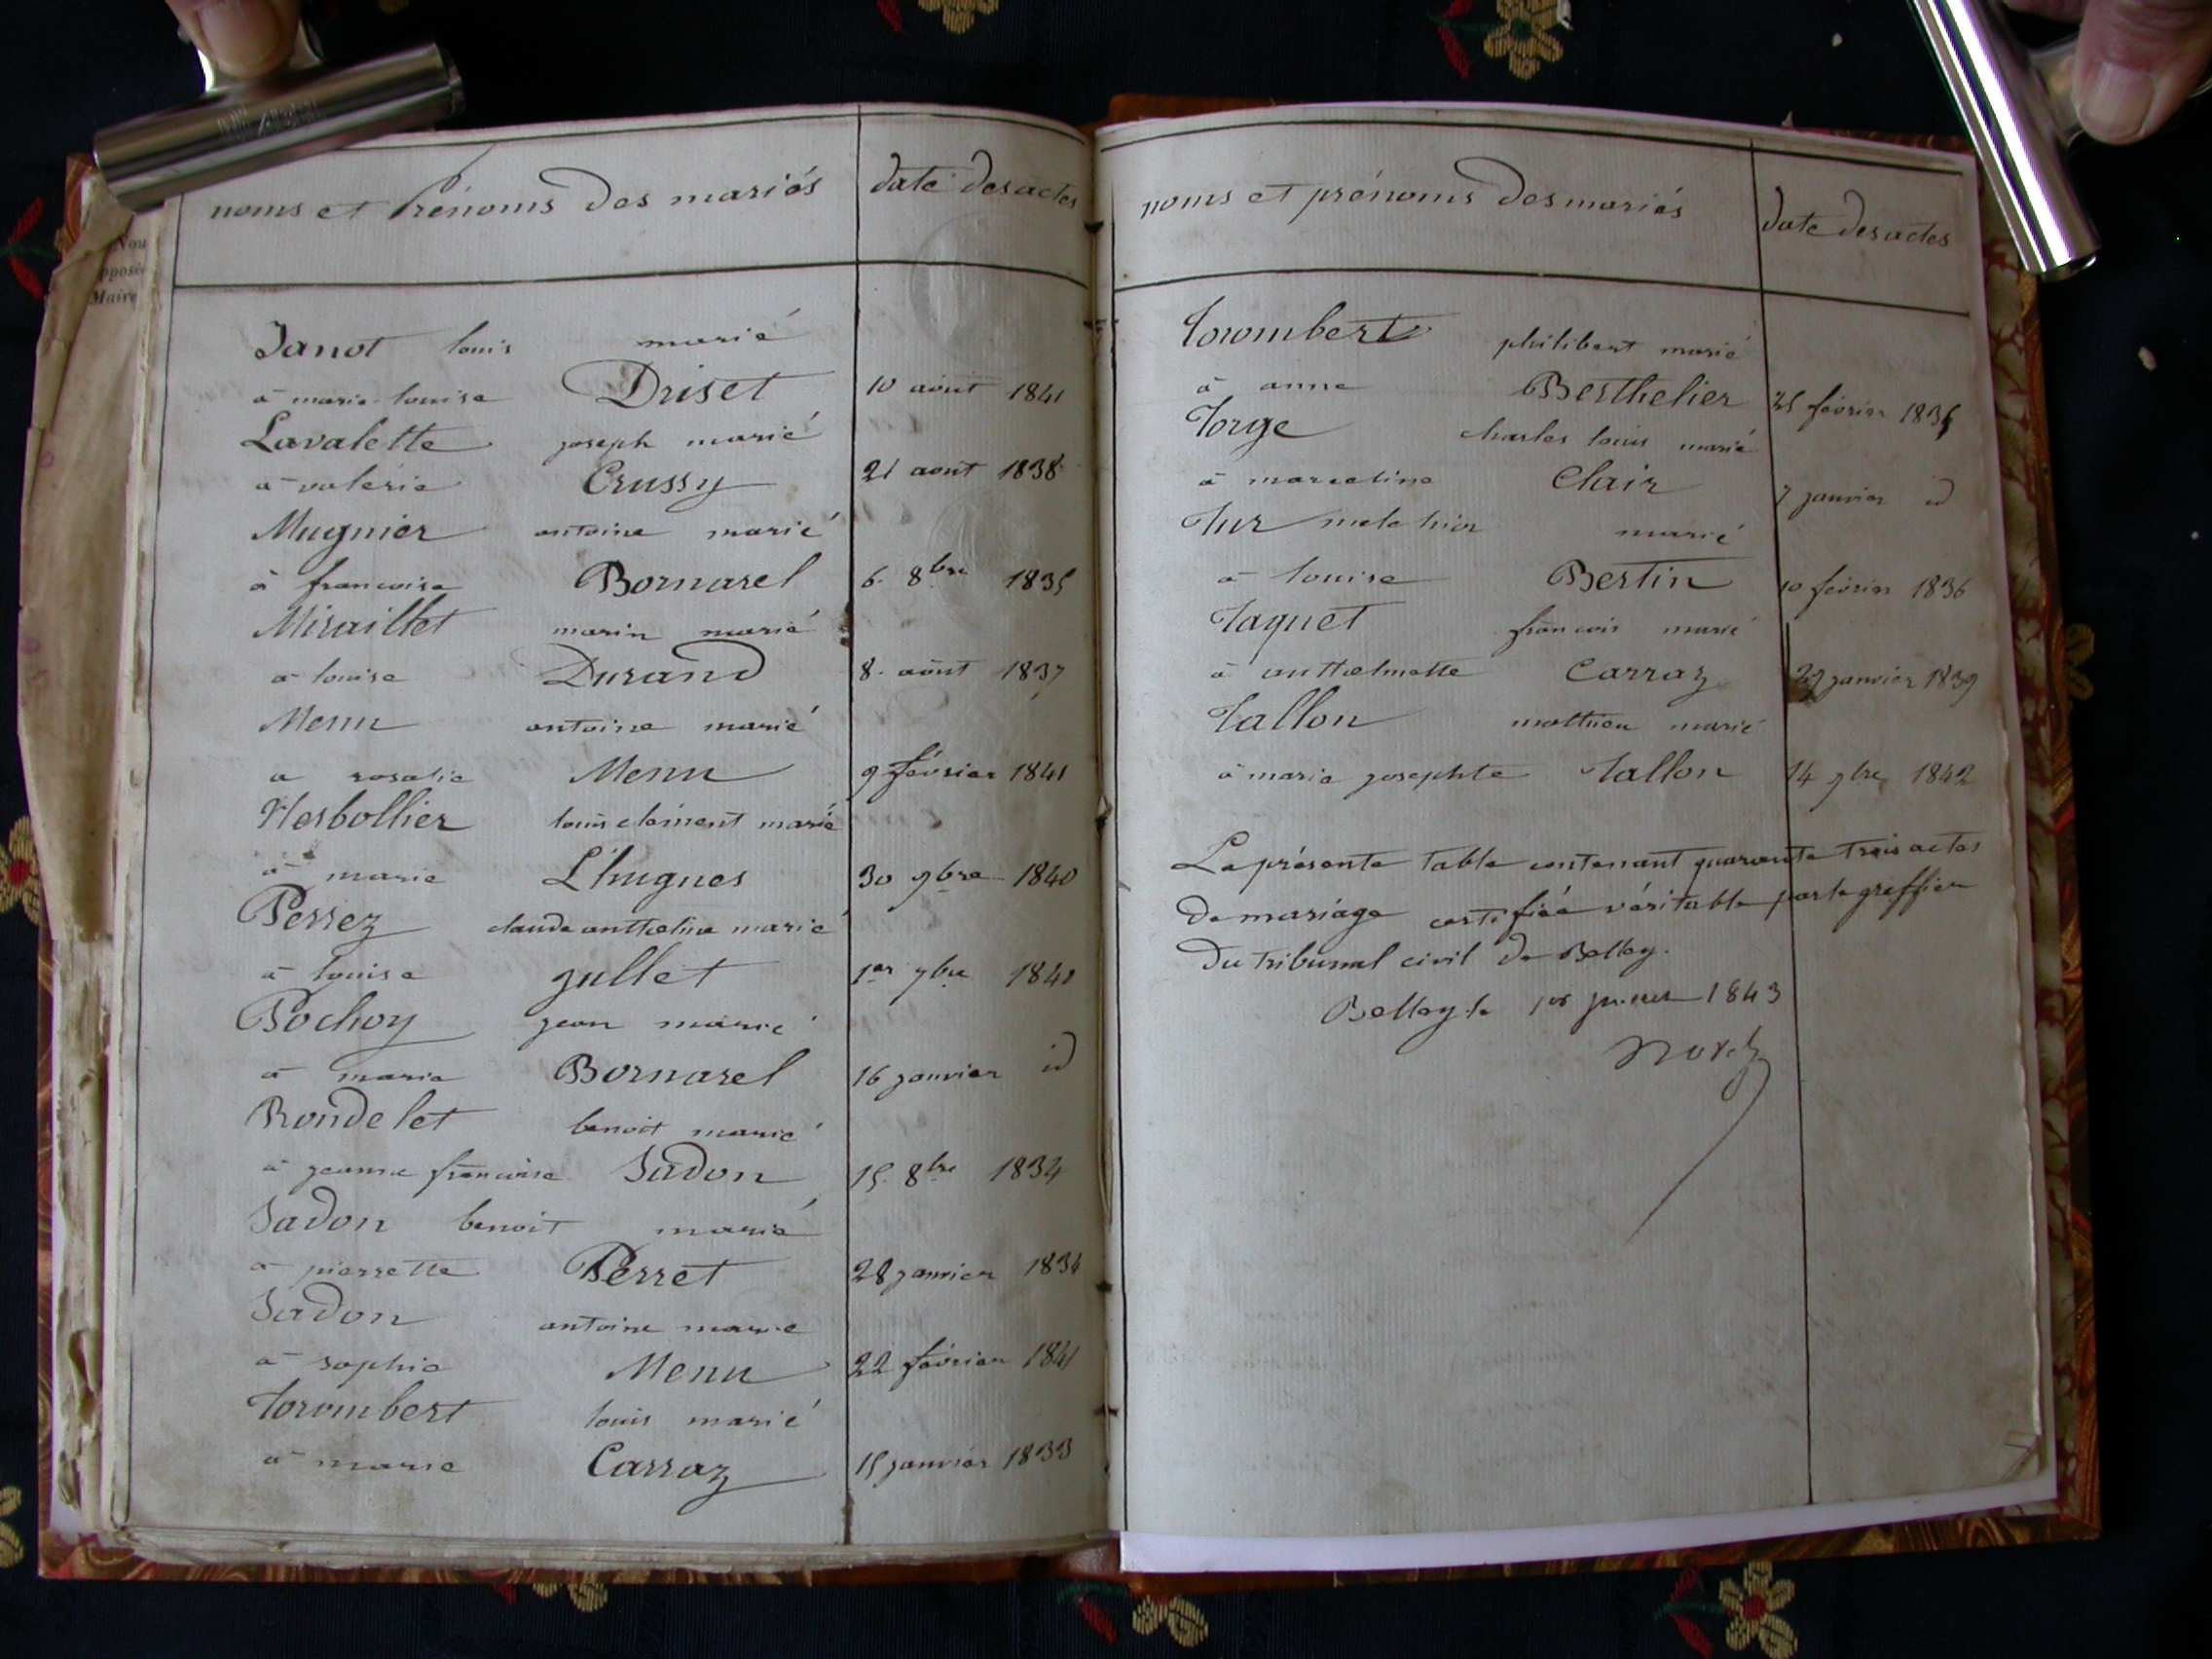 noms et Prénoms des mariés date des actes
Janot louis marié
à marie louise Driset 10 août 1841
Lavalette joseph marié
à valérie Crussy 21 aout 1838
Mugnier antoine marié
à francoise Bornarel 6. 8bre 1835
Miraillet marin marié
à louise Durand 8. août 1837
Menu antoine marié
a rosalie Menu 9 février 1841
Herbollier louis clément marié
à marie L'hugues 30 9bre 1840
Perrez claude anthelme marié
à louise jullet 1er 7bre 1840
Pochoy jean marié
à marie Bornarel 16 janvier id
Rondelet benoit marié
à jeanne francoise Sadon 15. 8bre 1834
Sadon benoit marié
à pierrette Perret 28 janvier 1834
Sadon antoine marié
à sophie Menu 22 février 1841
Torombert louis marié
à marie Carraz 15 janvier 1833
Nou
pposi
Maire
noms et prénoms des mariés date des actes
Torombert philibert marié
à anne Berthelier 25 février
Torge charles louis marié
à marceline Clair 7 janvier id
Tur melchior marié
à louise Bertin 10 février 1836
Taquet francois marié
à anthelmette Carraz 29 janvier 1839
Tallon mathieu marié
à marie josephte Tallon 14 9bre 1842
La présente table contenant quarante trois actes
de mariage certifiée véritable par le greffier
du tribunal civil de Belley.
Belley le 1er janvier 1843